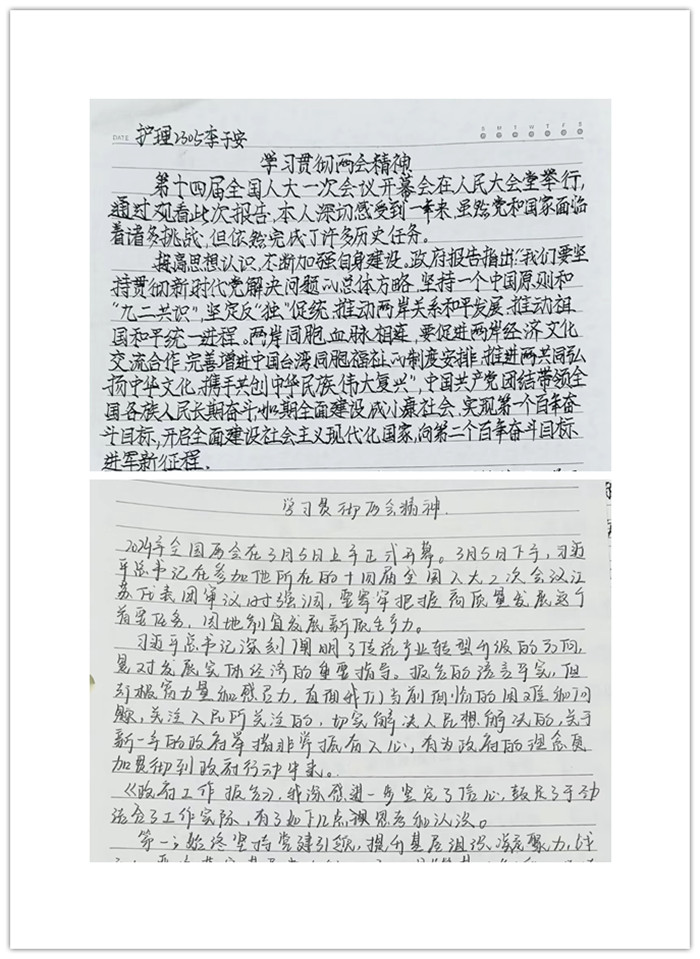 DATE 护理2305李于安
S M T W T F S
学习贯彻两会精神
第十四届全国人大一次会议开幕会在人民大会堂举行,
通过观看此次报告,本人深切感受到一年来,虽然党和国家面临
着诸多挑战,但依然完成了许多历史任务。
提高思想认识,不断加强自身建设。政府报告指出:"我们要坚
持贯彻新时代党解决问题的总体方略,坚持一个中国原则和
"九二共识",坚定反"独"促统,推动两岸关系和平发展,推动祖
国和平统一进程。两岸同胞血脉相连,要促进两岸经济文化
交流合作,完善增进中国台湾同胞福祉的制度安排,推进两共同弘
扬中华文化,携手共创中华民族伟大复兴",中国共产党团结带领全
国各族人民长期奋斗,如期全面建设成小康社会,实现第一个百年奋
斗目标,开启全面建设社会主义现代化国家,向第二个百年奋斗目标
进军新征程。
学习贯彻两会精神.
2024年全国两会在3月5日上午正式开幕。3月5日下午,习近
平总书记在参加他所在的十四届全国人大2次会议江
苏代表团审议时强调,要牢牢把握高质量发展这个
首要任务,因地制宜发展新质生产力。
习近平总书记深刻阐明了传统产业转型升级的方向,
是对发展实体经济的重要指导。报告的语言平实,但
却极富力量和感召力,直面我们当前面临的困难和问
题,关注人民所关注的,切实解决人民想解决的,关于
新一年的政府举措非常振奋人心,有为政府的理念更
加贯彻到政府行动中来。
《政府工作报告》,我深感进一步坚定了信心,鼓足了干劲
结合了工作实际,有了如下几点思考和认识。
第一:始终坚持党建引领,提升基层组织凝聚力,